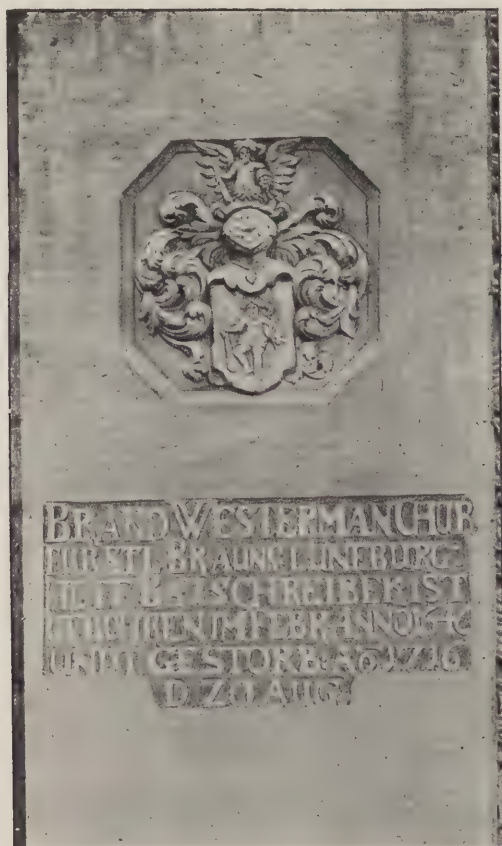 BRAND WESTERMAN CHUR
FURSTL BRAUNS LUNEBURG
SCHREIBER IST
IM FEBR ANNO
GESTORB. AO 1716
D. 20 AUG.